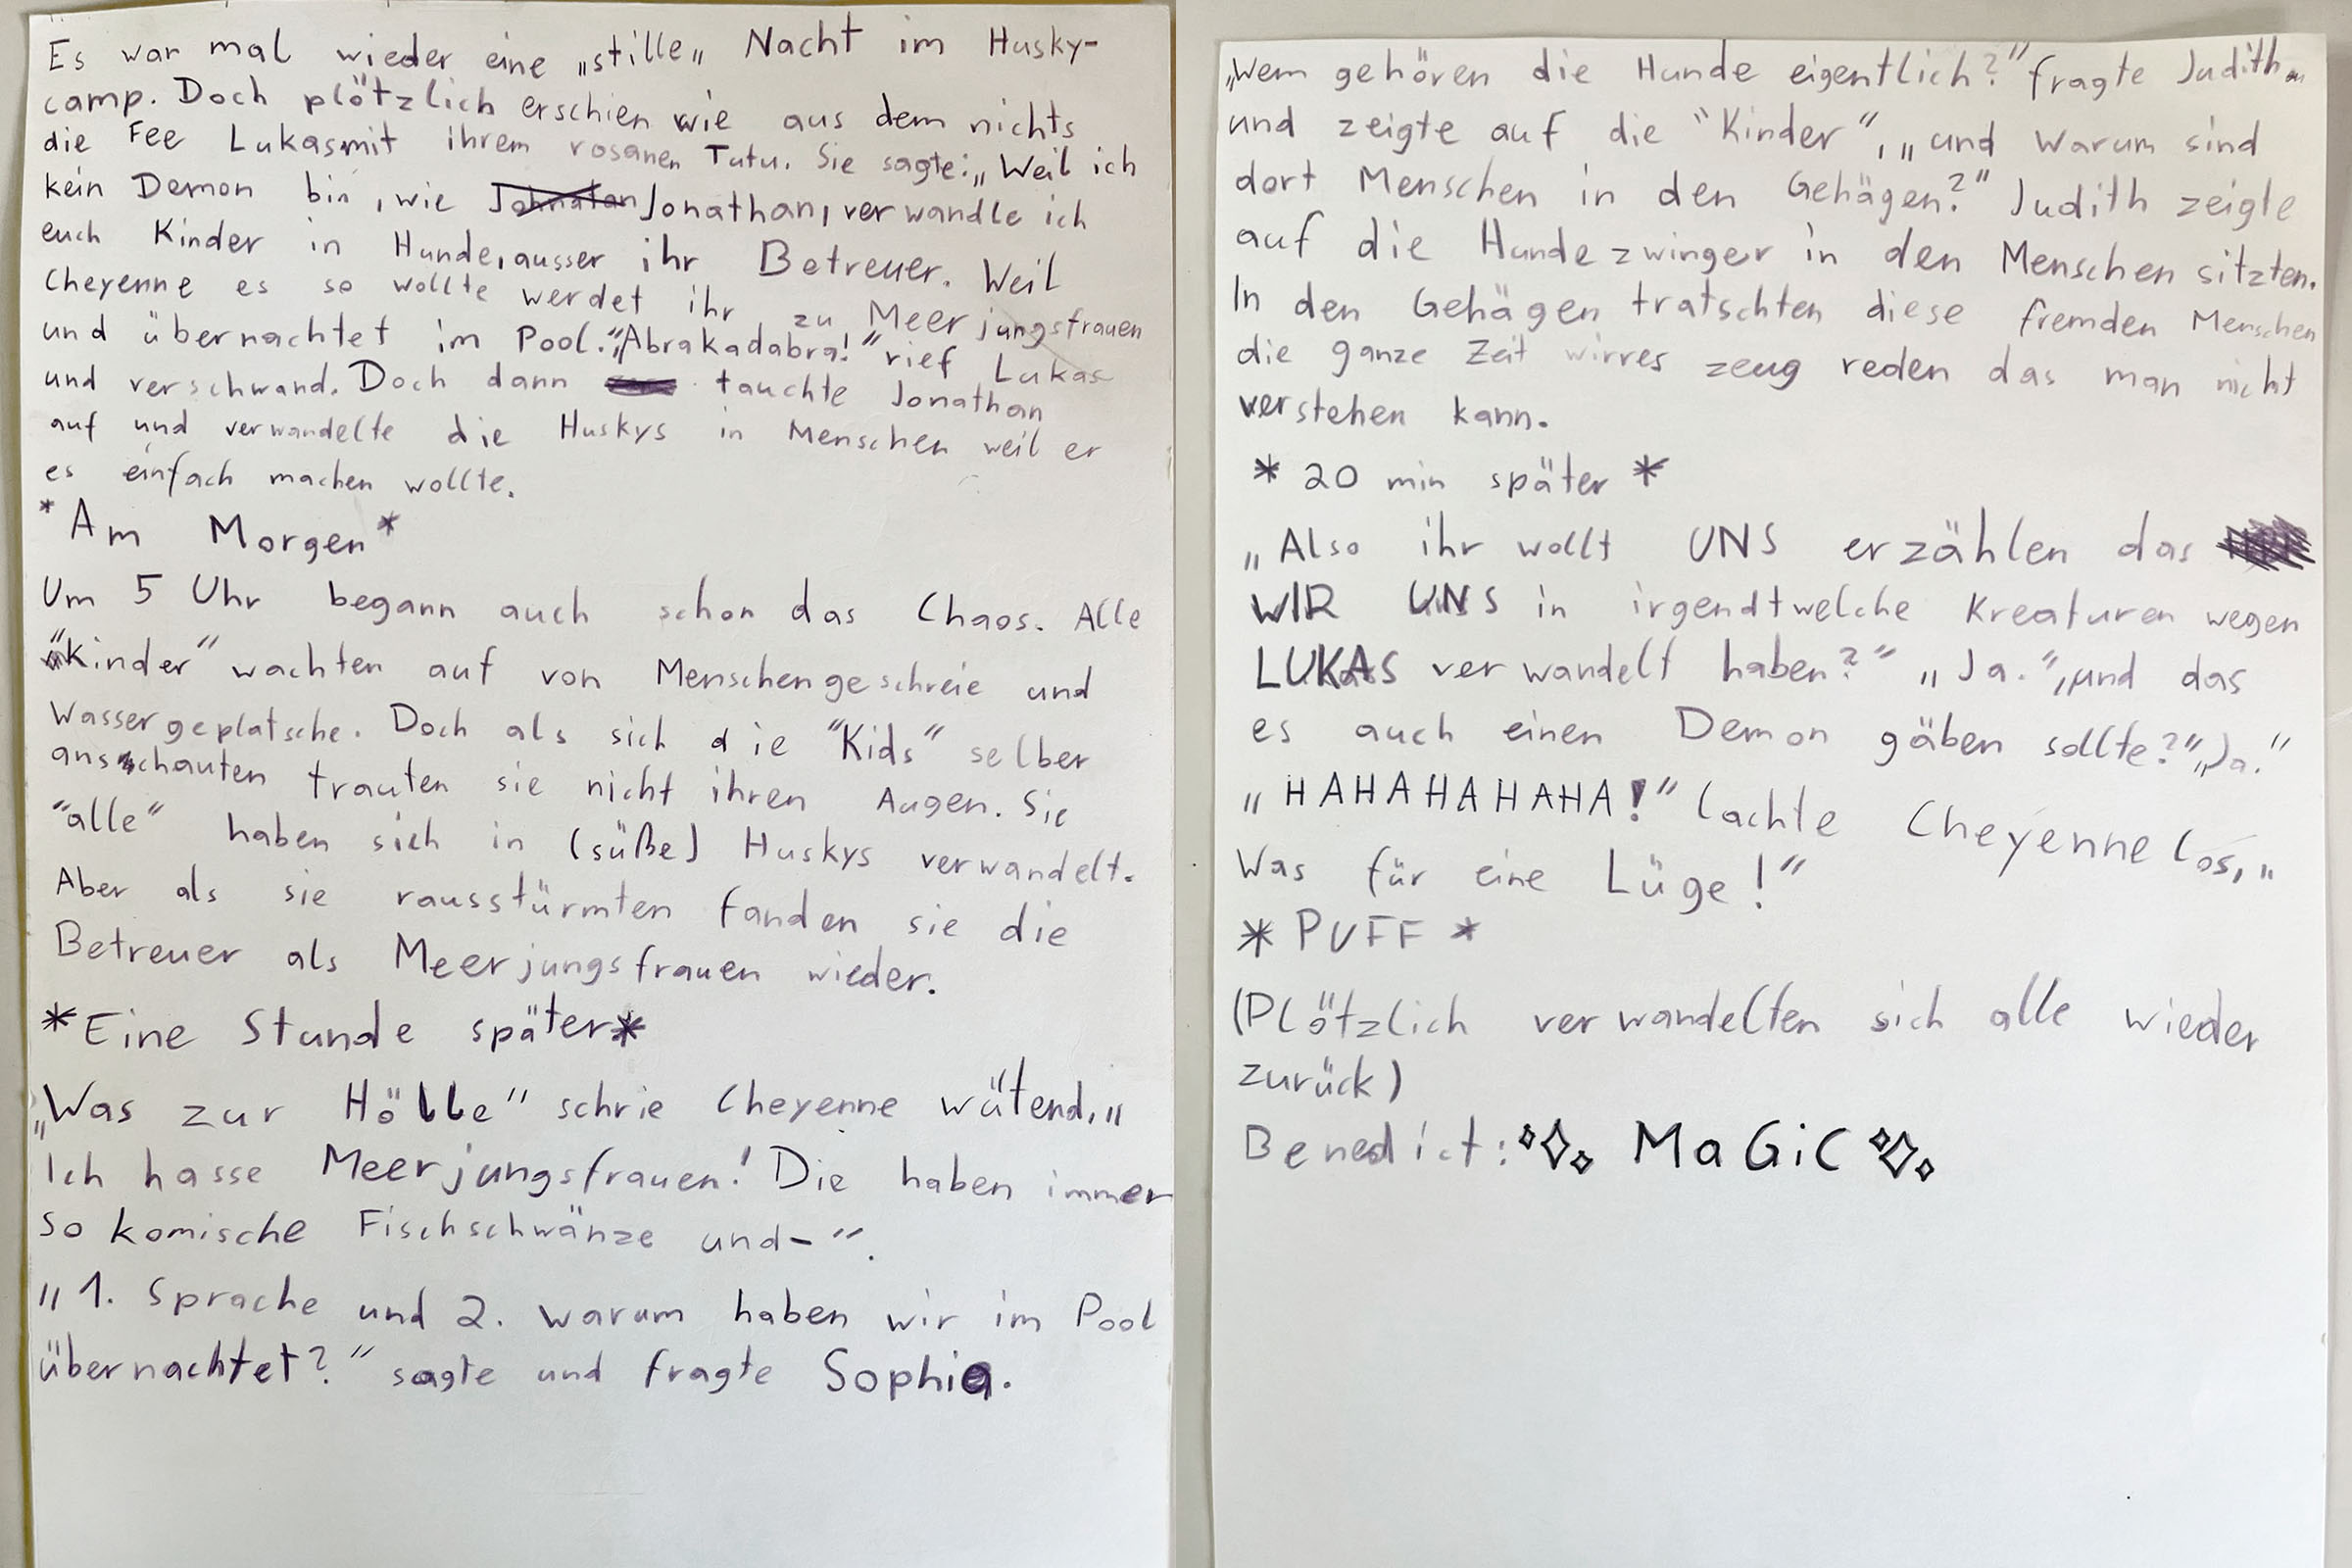 Es war mal wieder eine „stille„ Nacht im Husky-
camp. Doch plötzlich erschien wie aus dem nichts
die Fee Lukas mit ihrem rosanen Tutu. Sie sagte:„Weil ich
kein Demon bin, wie Johnatan Jonathan, verwandle ich
euch Kinder in Hunde, ausser ihr Betreuer. Weil
Cheyenne es so wollte werdet ihr zu Meerjungsfrauen
und übernachtet im Pool.“„Abrakadabra!“ rief Lukas
und verschwand. Doch dann tauchte Jonathan
auf und verwandelte die Huskys in Menschen weil er
es einfach machen wollte.
*Am Morgen*
Um 5 Uhr begann auch schon das Chaos. Alle
“Kinder“ wachten auf von Menschengeschreie und
Wassergeplatsche. Doch als sich die “Kids“ selber
anschauten trauten sie nicht ihren Augen. Sie
“alle“ haben sich in (süße) Huskys verwandelt.
Aber als sie rausstürmten fanden sie die
Betreuer als Meerjungsfrauen wieder.
*Eine Stunde später*
„Was zur Hölle“ schrie Cheyenne wütend,„
Ich hasse Meerjungsfrauen! Die haben immer
so komische Fischschwänze und-“.
„1. Sprache und 2. warum haben wir im Pool
übernachtet?“ sagte und fragte Sophia.
„Wem gehören die Hunde eigentlich?“ fragte Judith
und zeigte auf die “Kinder“,„und warum sind
dort Menschen in den Gehägen?“ Judith zeigte
auf die Hundezwinger in den Menschen sitzten.
In den Gehägen tratschten diese fremden Menschen
die ganze Zeit wirres zeug reden das man nicht
verstehen kann.
*20 min später*
„Also ihr wollt UNS erzählen das
WIR UNS in irgendtwelche Kreaturen wegen
LUKAS verwandelt haben?“ „Ja.“,„und das
es auch einen Demon gäben sollte?“„Ja.“
„HAHAHAHAHA!“ lachte Cheyenne los,„
Was für eine Lüge!“
*PUFF*
(Plötzlich verwandelten sich alle wieder
zurück)
Benedict: MaGiC